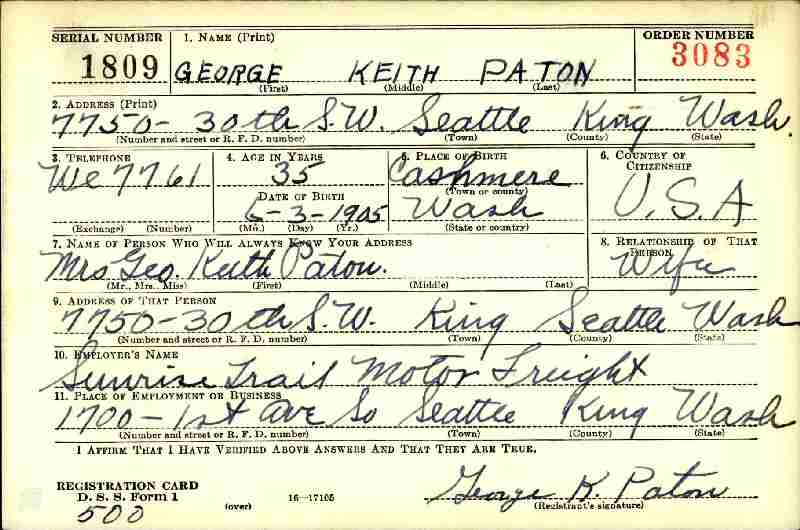 SERIAL NUMBER 1. NAME (Print) ORDER NUMBER
1809 GEORGE KEITH PATON 3083
(First) (Middle) (Last)
2. ADDRESS (Print)
7750- 30th S.W. Seattle King Wash.
(Number and street or R. F. D. number) (Town) (County) (State)
3. TELEPHONE 4. AGE IN YEARS 5. PLACE OF BIRTH 6. COUNTRY OF CITIZENSHIP
We 7761 35 Cashmere U.S.A
(Town or county)
DATE OF BIRTH
6-3-1905 Wash
(Exchange) (Number) (Mo.) (Day) (Yr.) (State or country)
7. NAME OF PERSON WHO WILL ALWAYS KNOW YOUR ADDRESS 8. RELATIONSHIP OF THAT PERSON
Mrs Geo. Keith Paton. Wife
(Mr., Mrs., Miss) (First) (Middle) (Last)
9. ADDRESS OF THAT PERSON
7750-30th S.W. King Seattle Wash
(Number and street or R. F. D. number) (Town) (County) (State)
10. EMPLOYER'S NAME
Sunrise Trail Motor Freight
11. PLACE OF EMPLOYMENT OR BUSINESS
1700-1st Ave So Seattle King Wash
(Number and street or R. F. D. number) (Town) (County) (State)
I AFFIRM THAT I HAVE VERIFIED ABOVE ANSWERS AND THAT THEY ARE TRUE.
REGISTRATION CARD
D. S. S. Form 1 (over) 16-17105 George K. Paton
500 (Registrant's signature)